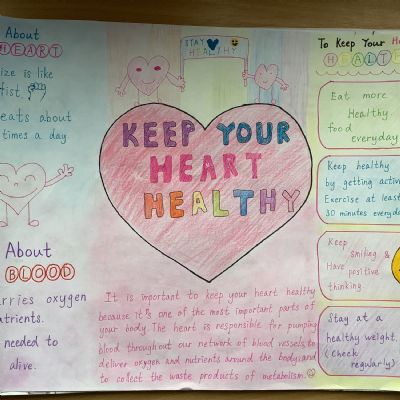 About
HEART
ize is like
fist.
eats about
times a day.
About
BLOOD
arries oxygen
utrients.
needed to
alive.
STAY
HEALTHY
KEEP YOUR
HEART
HEALTHY
It is important to keep your heart healthy
because it is one of the most important parts of
your body. The heart is responsible for pumping
blood throughout our network of blood vessels, to
deliver oxygen and nutrients around the body, and
to collect the waste products of metabolism.
To Keep Your He
HEALTH
Eat more
Healthy
food
everyday
Keep healthy
by getting active
Exercise at least
30 minutes everyday
Keep
smiling &
Have positive
thinking.
Stay at a
healthy weight.
(Check
regularly)